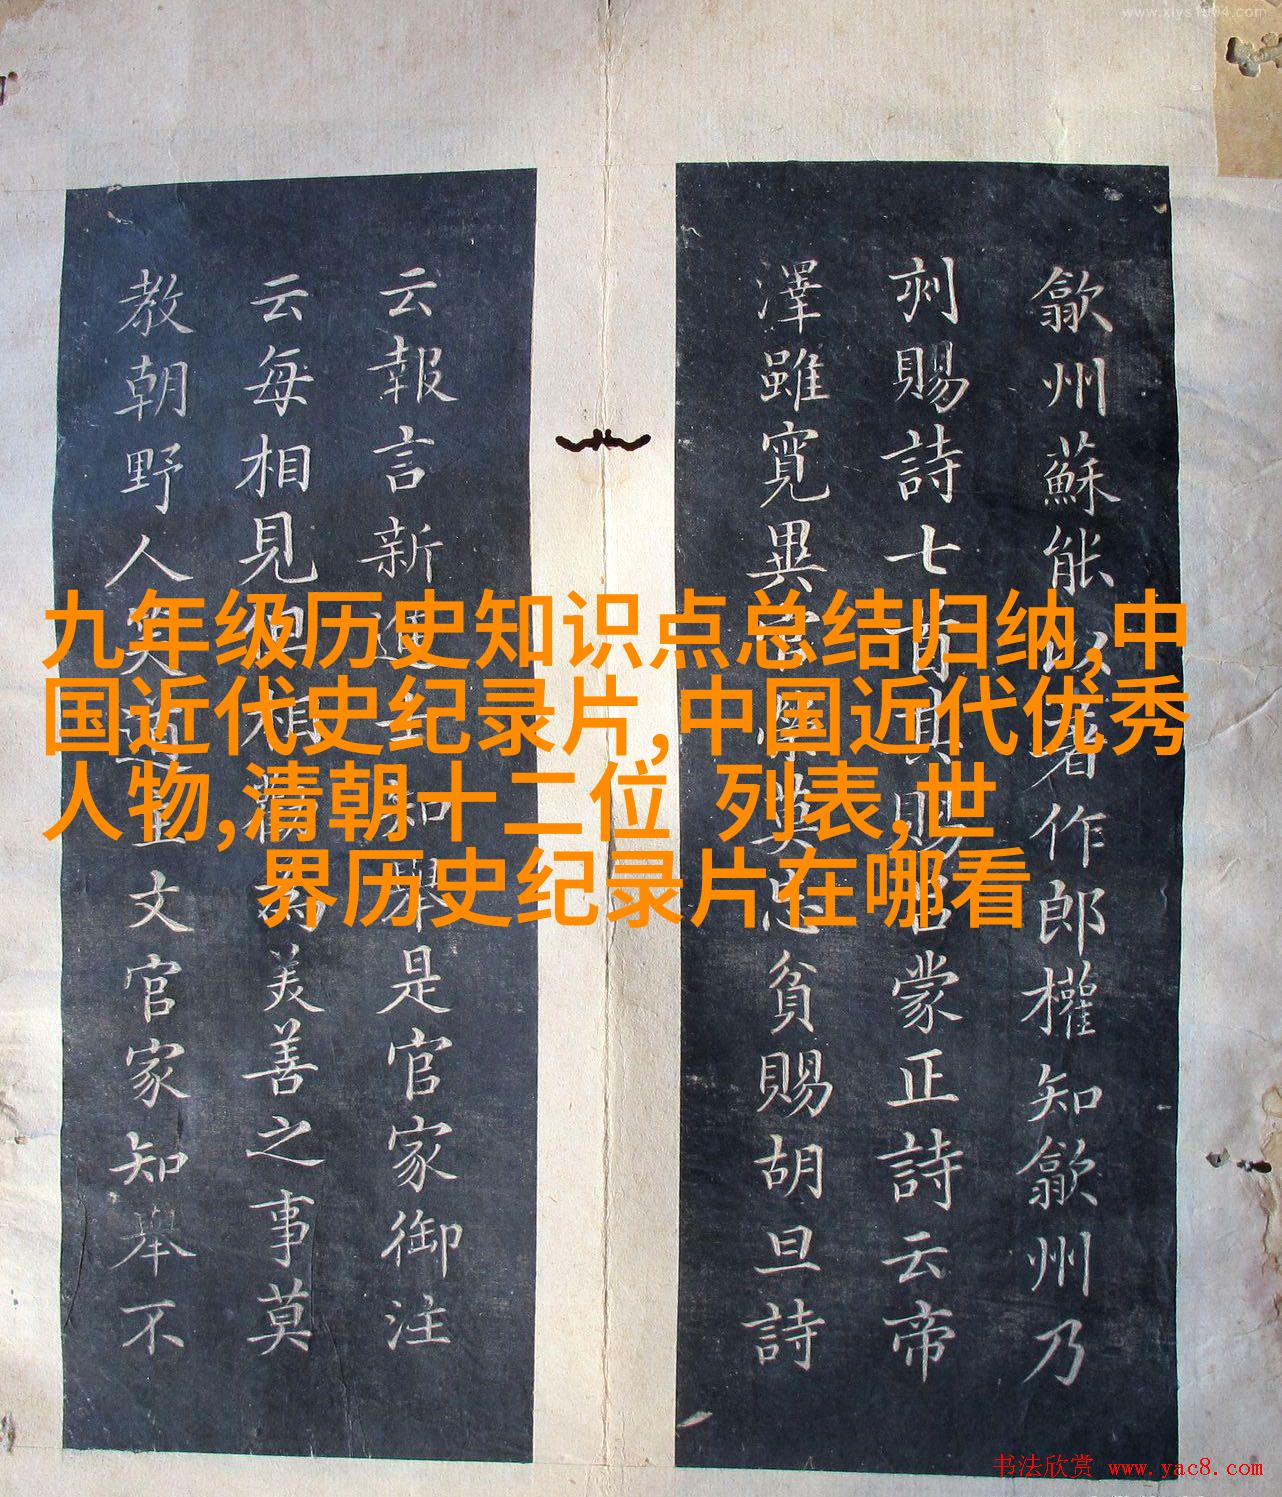 歙州蘇能以著作郎權知歙州乃
刺賜詩七首其賜呂蒙正詩云帝
澤雖寬異英忠貧賜胡旦詩
云報言新進士知舉是官家御注
云每相見但相為美善之事莫
教朝野人笑道主文官家知舉不
九年级历史知识点总结归纳,中
国近代史纪录片,中国近代优秀
人物,清朝十二位 列表,世
界历史纪录片在哪看
书法欣赏 www.yac8.com